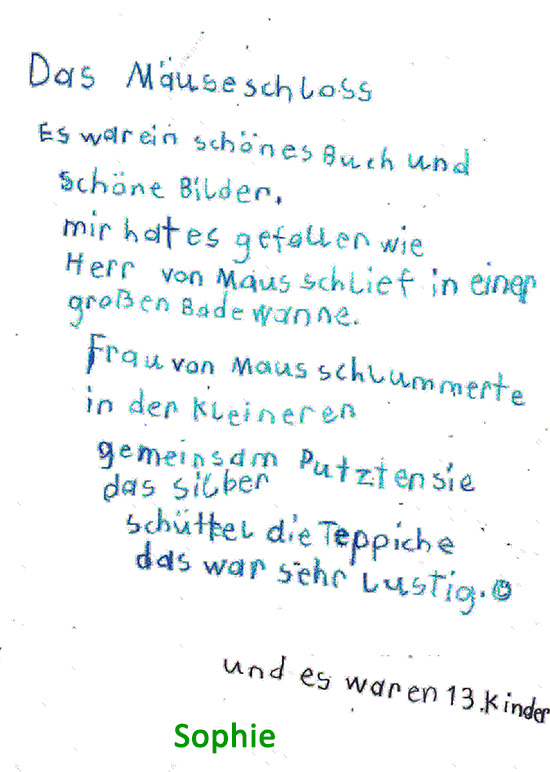 Das Mäuseschloss
Es war ein schönes Buch und
schöne Bilder.
mir hat es gefallen wie
Herr von Maus schlief in einer
großen Badewanne.
Frau von Maus schlummerte
in der kleineren
gemeinsam Putzten sie
das silber
schüttel die Teppiche
das war sehr Lustig.☺
und es waren 13.Kinder
Sophie